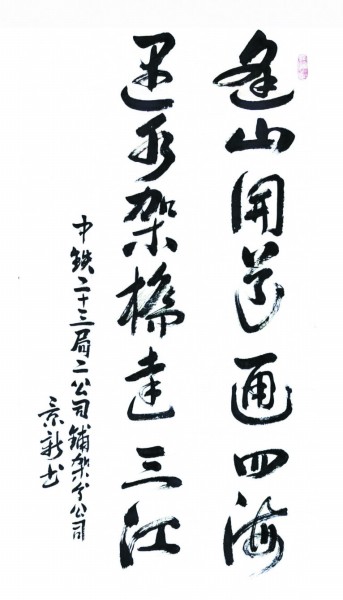 逢山開道通四海
遇水架橋達三江
中铁二十三局二公司鋪架分公司
景新书